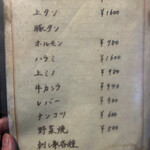 上タン ¥1600
豚タン
ホルモン ¥980
ハラミ ¥1600
上ミノ ¥980
牛カシラ ¥980
レバー
ナンコツ ¥600
野菜焼 ¥500
刺し身各種